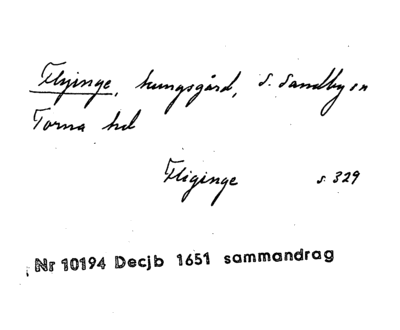 Flyinge, kungsgård, S. Sandby sn
Torna hd
Fliginge s 329
Nr 10194 Decjb 1651 sammandrag